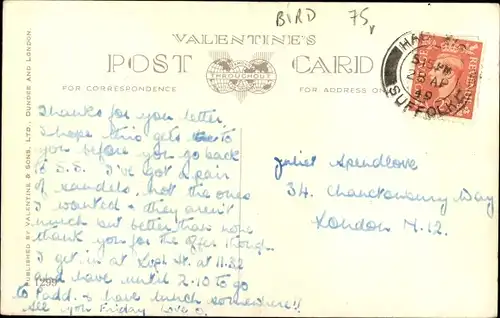 BIRD 75
VALENTINE'S
POST CARD
THROUGHOUT
FOR CORRESPONDENCE
FOR ADDRESS ON
5 15 PM
AP
49
SUFFOLK
REVENUE
PUBLISHED BY VALENTINE & SONS, LTD., DUNDEE AND LONDON.
Thanks for your letter,
I hope this gets to
you before you go back
to S.S. I've got a pair
of sandels, not the ones
I wanted & they aren't
much but better than none
thank you for the offer though.
I get in at Lpl St. at 11.32
and have until 2.10 to go
to Padd. & have lunch somewhere!!
See you Friday love
1299
Juliet Spendlove
34. Chanctonbury Way
London N.12.